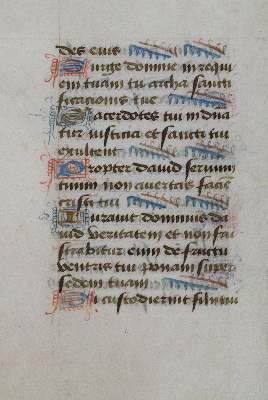 des eius
Surge domine in requi
em tuam tu archa sancti
ficacionis tue
Sacerdotes tui indua
tur iusticia et sancti tui
exultent
Propter david servum
tuum non avertas facie
cristi tui
Iuravit dominus da
vid veritatem et non fru
strabitur eum de fructu
ventris tui ponam super
sedem tuam
Si custodierint filii tui